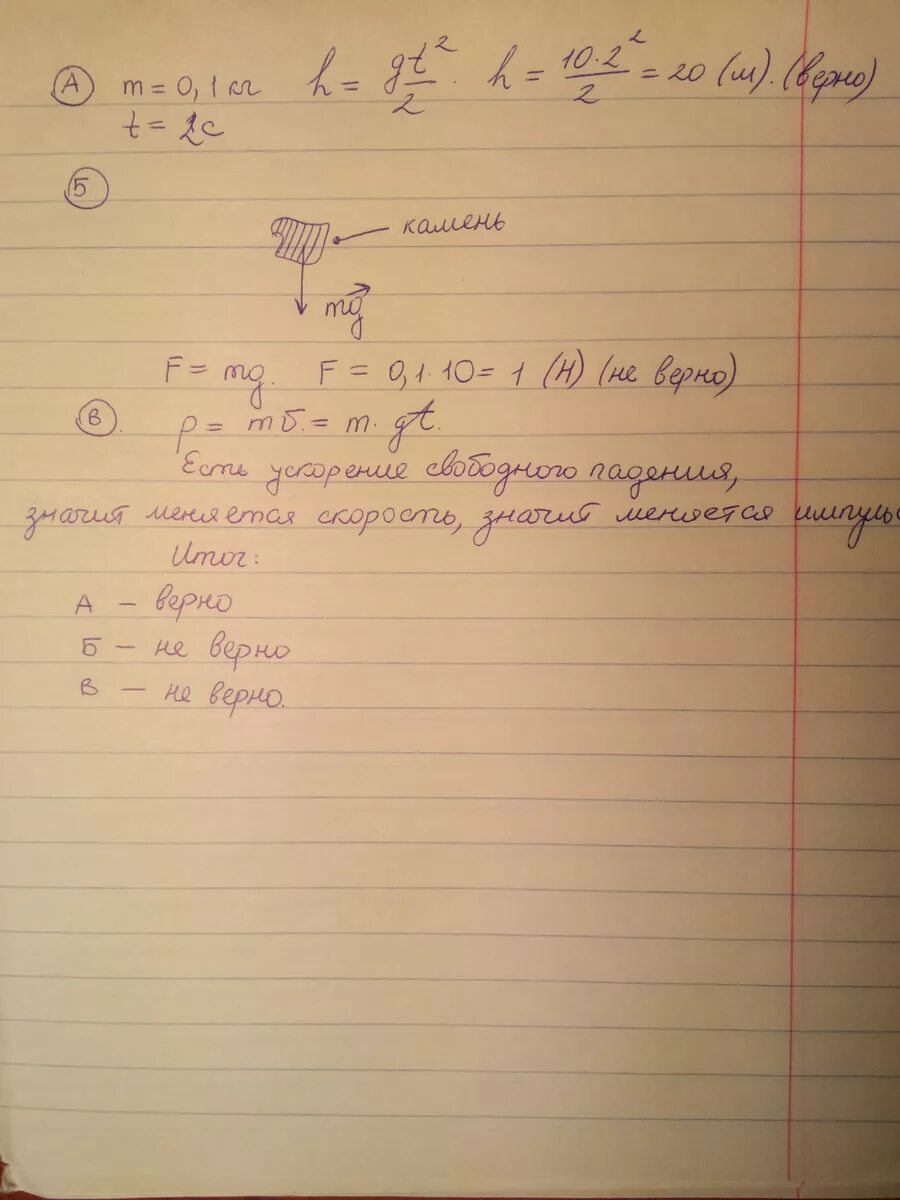 А m = 0,1 кг h = gt²/2. h = 10·2²/2 = 20 (м). (верно)
t = 2с
Б
камень
mg
F = mg. F = 0,1·10 = 1 (Н) (не верно)
В. p = mυ. = m·gt.
Есть ускорение свободного падения,
значит меняется скорость, значит меняется импульс
Итог:
А – верно
Б – не верно
В – не верно.